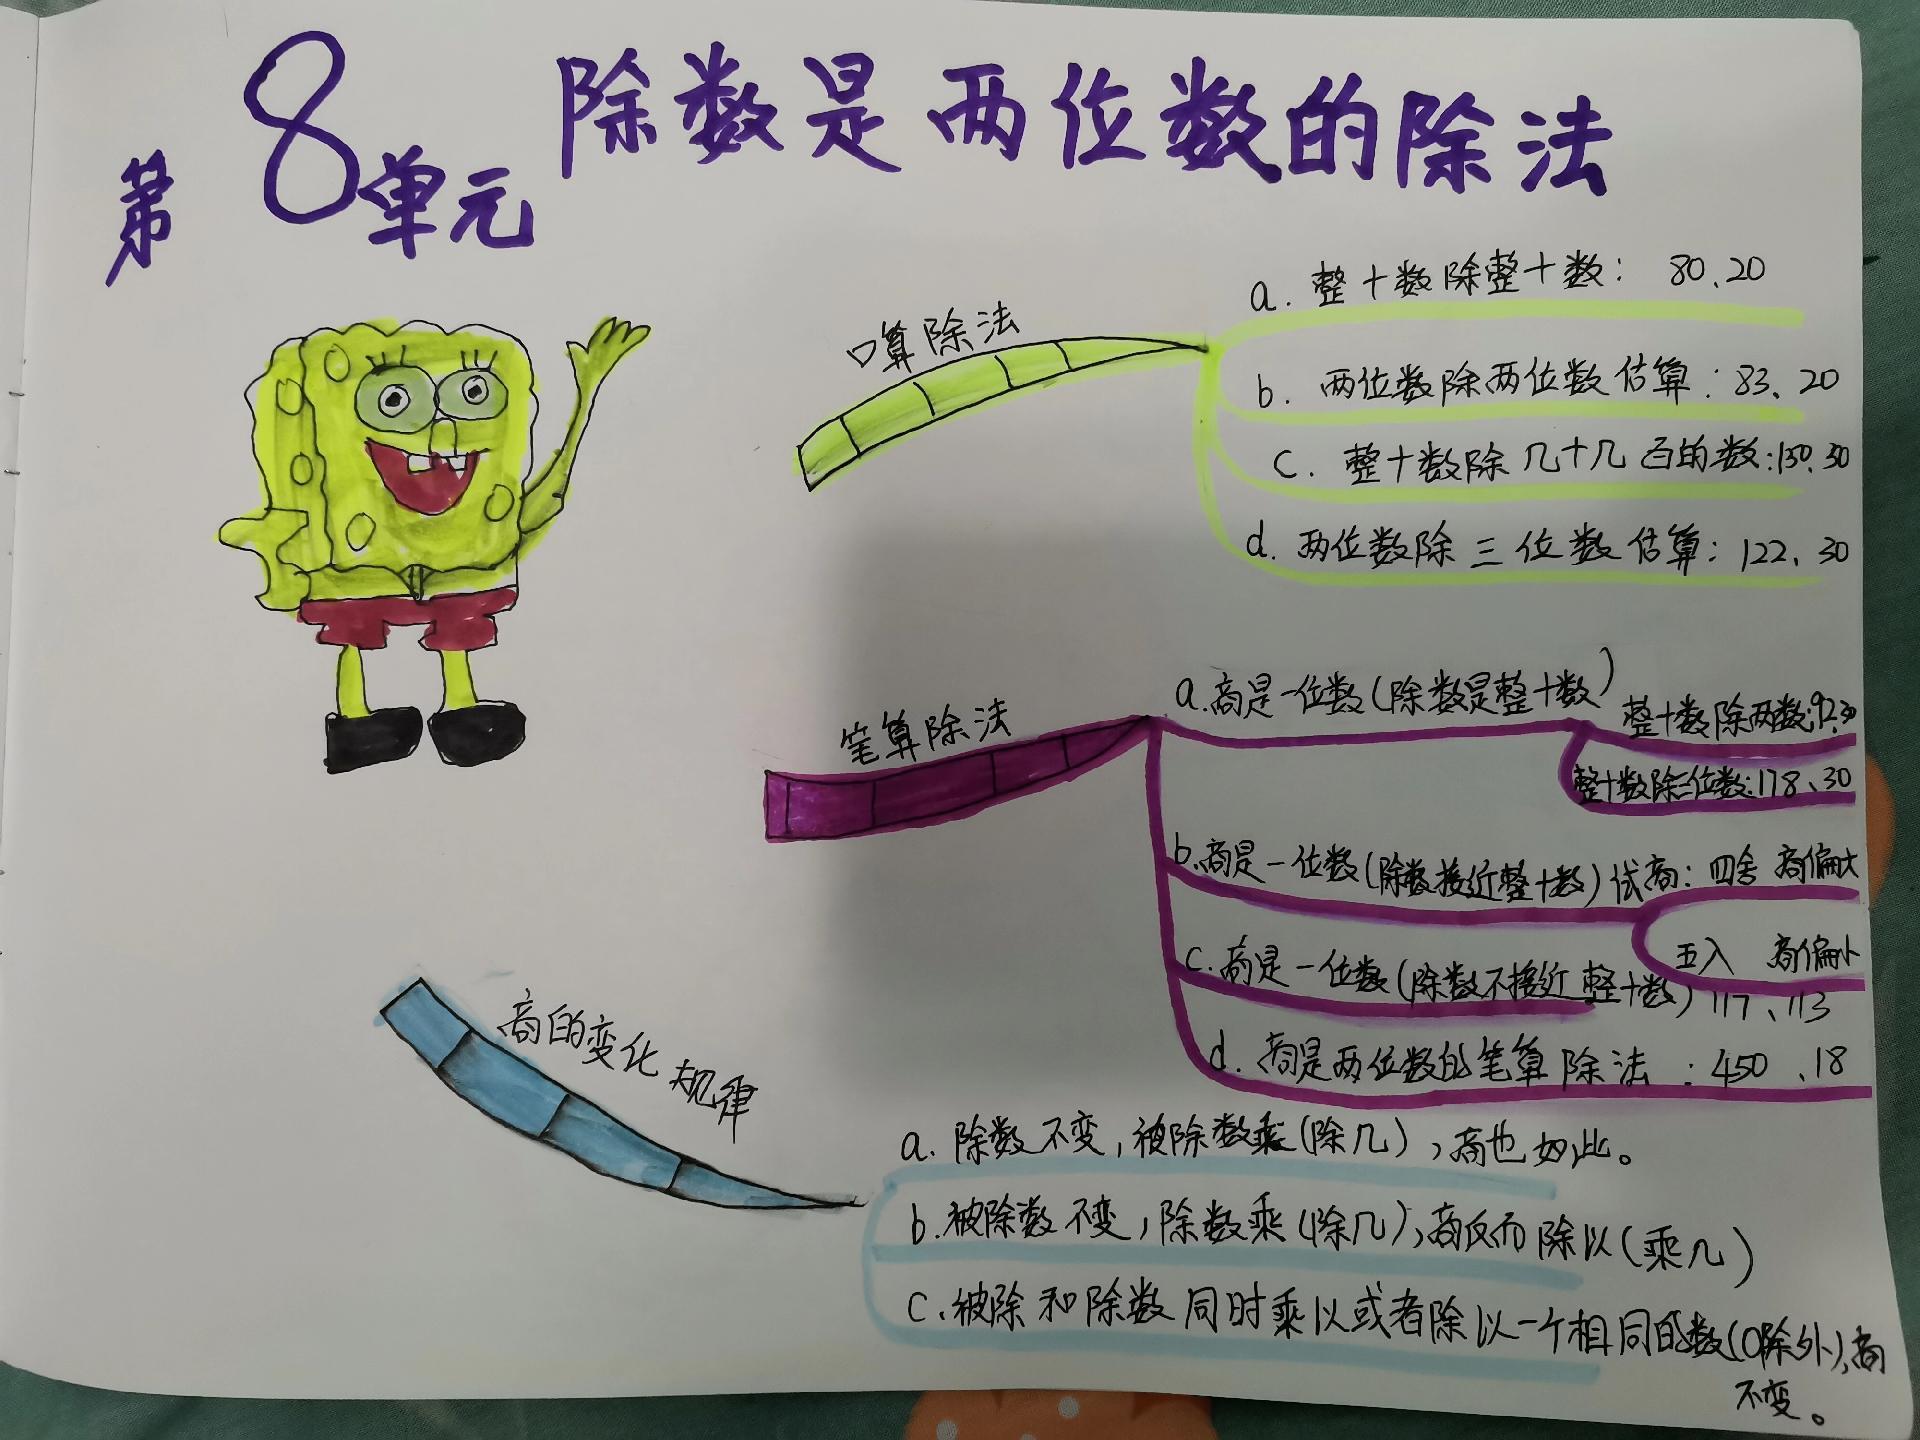 第8单元 除数是两位数的除法
口算除法
a. 整十数除整十数： 80、20
b. 两位数除两位数估算：83、20
c. 整十数除几十几百的数：150、30
d. 两位数除三位数估算：122、30
笔算除法
a.商是一位数(除数是整十数)
整十数除两数：92、30
整十数除三位数：178、30
b.商是一位数(除数接近整十数)试商：四舍 商偏大
五入 商偏小
c.商是一位数(除数不接近整十数)117、113
d.商是两位数的笔算除法：450、18
商的变化规律
a. 除数不变，被除数乘(除几)，商也如此。
b.被除数不变，除数乘(除几)，商反而除以(乘几)
c.被除和除数同时乘以或者除以一个相同的数(0除外)，商
不变。